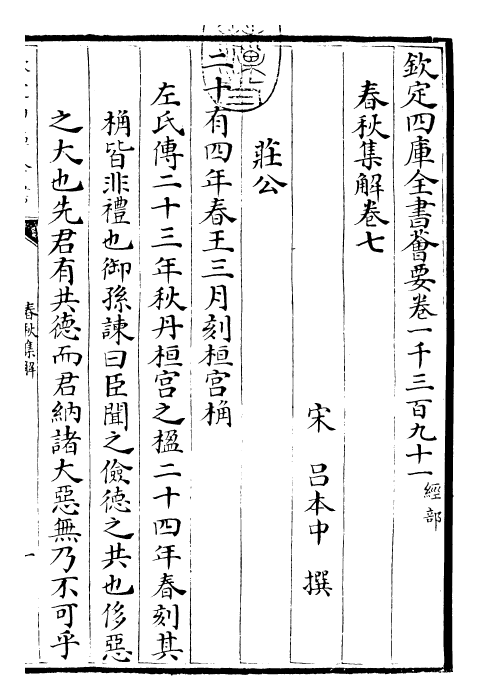 欽定四庫全書薈要卷一千三百九十一 經部
春秋集解卷七
宋 呂本中 撰
莊公
二十有四年春王三月刻桓宮桷
左氏傳二十三年秋丹桓宮之楹二十四年春刻其
桷皆非禮也御孫諫曰臣聞之儉德之共也侈惡
之大也先君有共德而君納諸大惡無乃不可乎
春秋集解
一